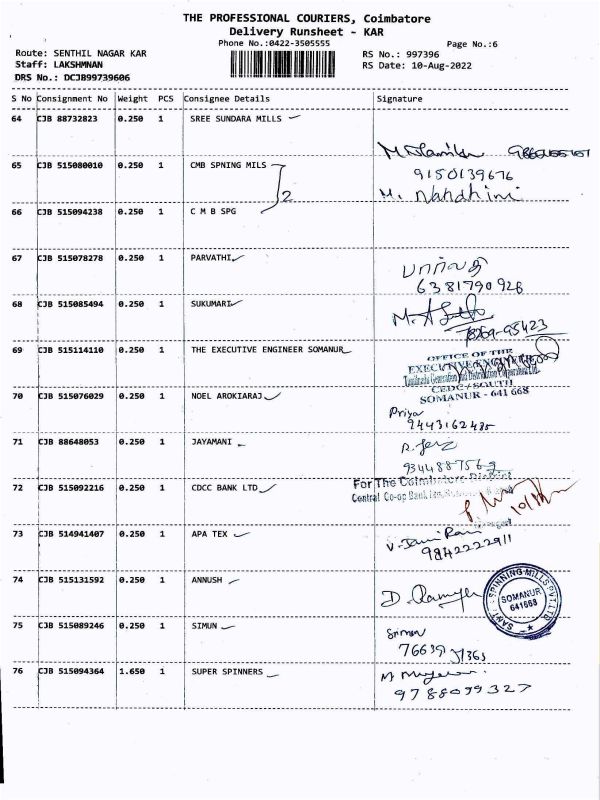 THE PROFESSIONAL COURIERS, Coimbatore
Delivery Runsheet - KAR
Phone No.:0422-3505555
Page No.:6
Route: SENTHIL NAGAR KAR
RS No.: 997396
Staff: LAKSHMNAN
RS Date: 10-Aug-2022
DRS No.: DCJB99739606
S No Consignment No Weight PCS Consignee Details Signature
64 CJB 88732823 0.250 1 SREE SUNDARA MILLS
65 CJB 515080010 0.250 1 CMB SPNING MILS
9150139676
M. Nandhini
2
66 CJB 515094238 0.250 1 C M B SPG
67 CJB 515078278 0.250 1 PARVATHI
பார்வதி
6381790926
68 CJB 515085494 0.250 1 SUKUMARI
69 CJB 515114110 0.250 1 THE EXECUTIVE ENGINEER SOMANUR
OFFICE OF THE
EXECUTIVE ENGINEER
Tamilnadu Generation and Distribution Corporation Ltd.
CEDC / SOUTH
SOMANUR - 641 668
70 CJB 515076029 0.250 1 NOEL AROKIARAJ
Priya
9443162485
71 CJB 88648053 0.250 1 JAYAMANI
72 CJB 515092216 0.250 1 CDCC BANK LTD
For The Coimbatore District
Central Co-op Bank Ltd.,
73 CJB 514941407 0.250 1 APA TEX
V. Jami Rani
9842222911
74 CJB 515131592 0.250 1 ANNUSH
SPINNING MILLS PVT LTD
SOMANUR
641668
75 CJB 515089246 0.250 1 SIMUN
76 CJB 515094364 1.650 1 SUPER SPINNERS
9788099327